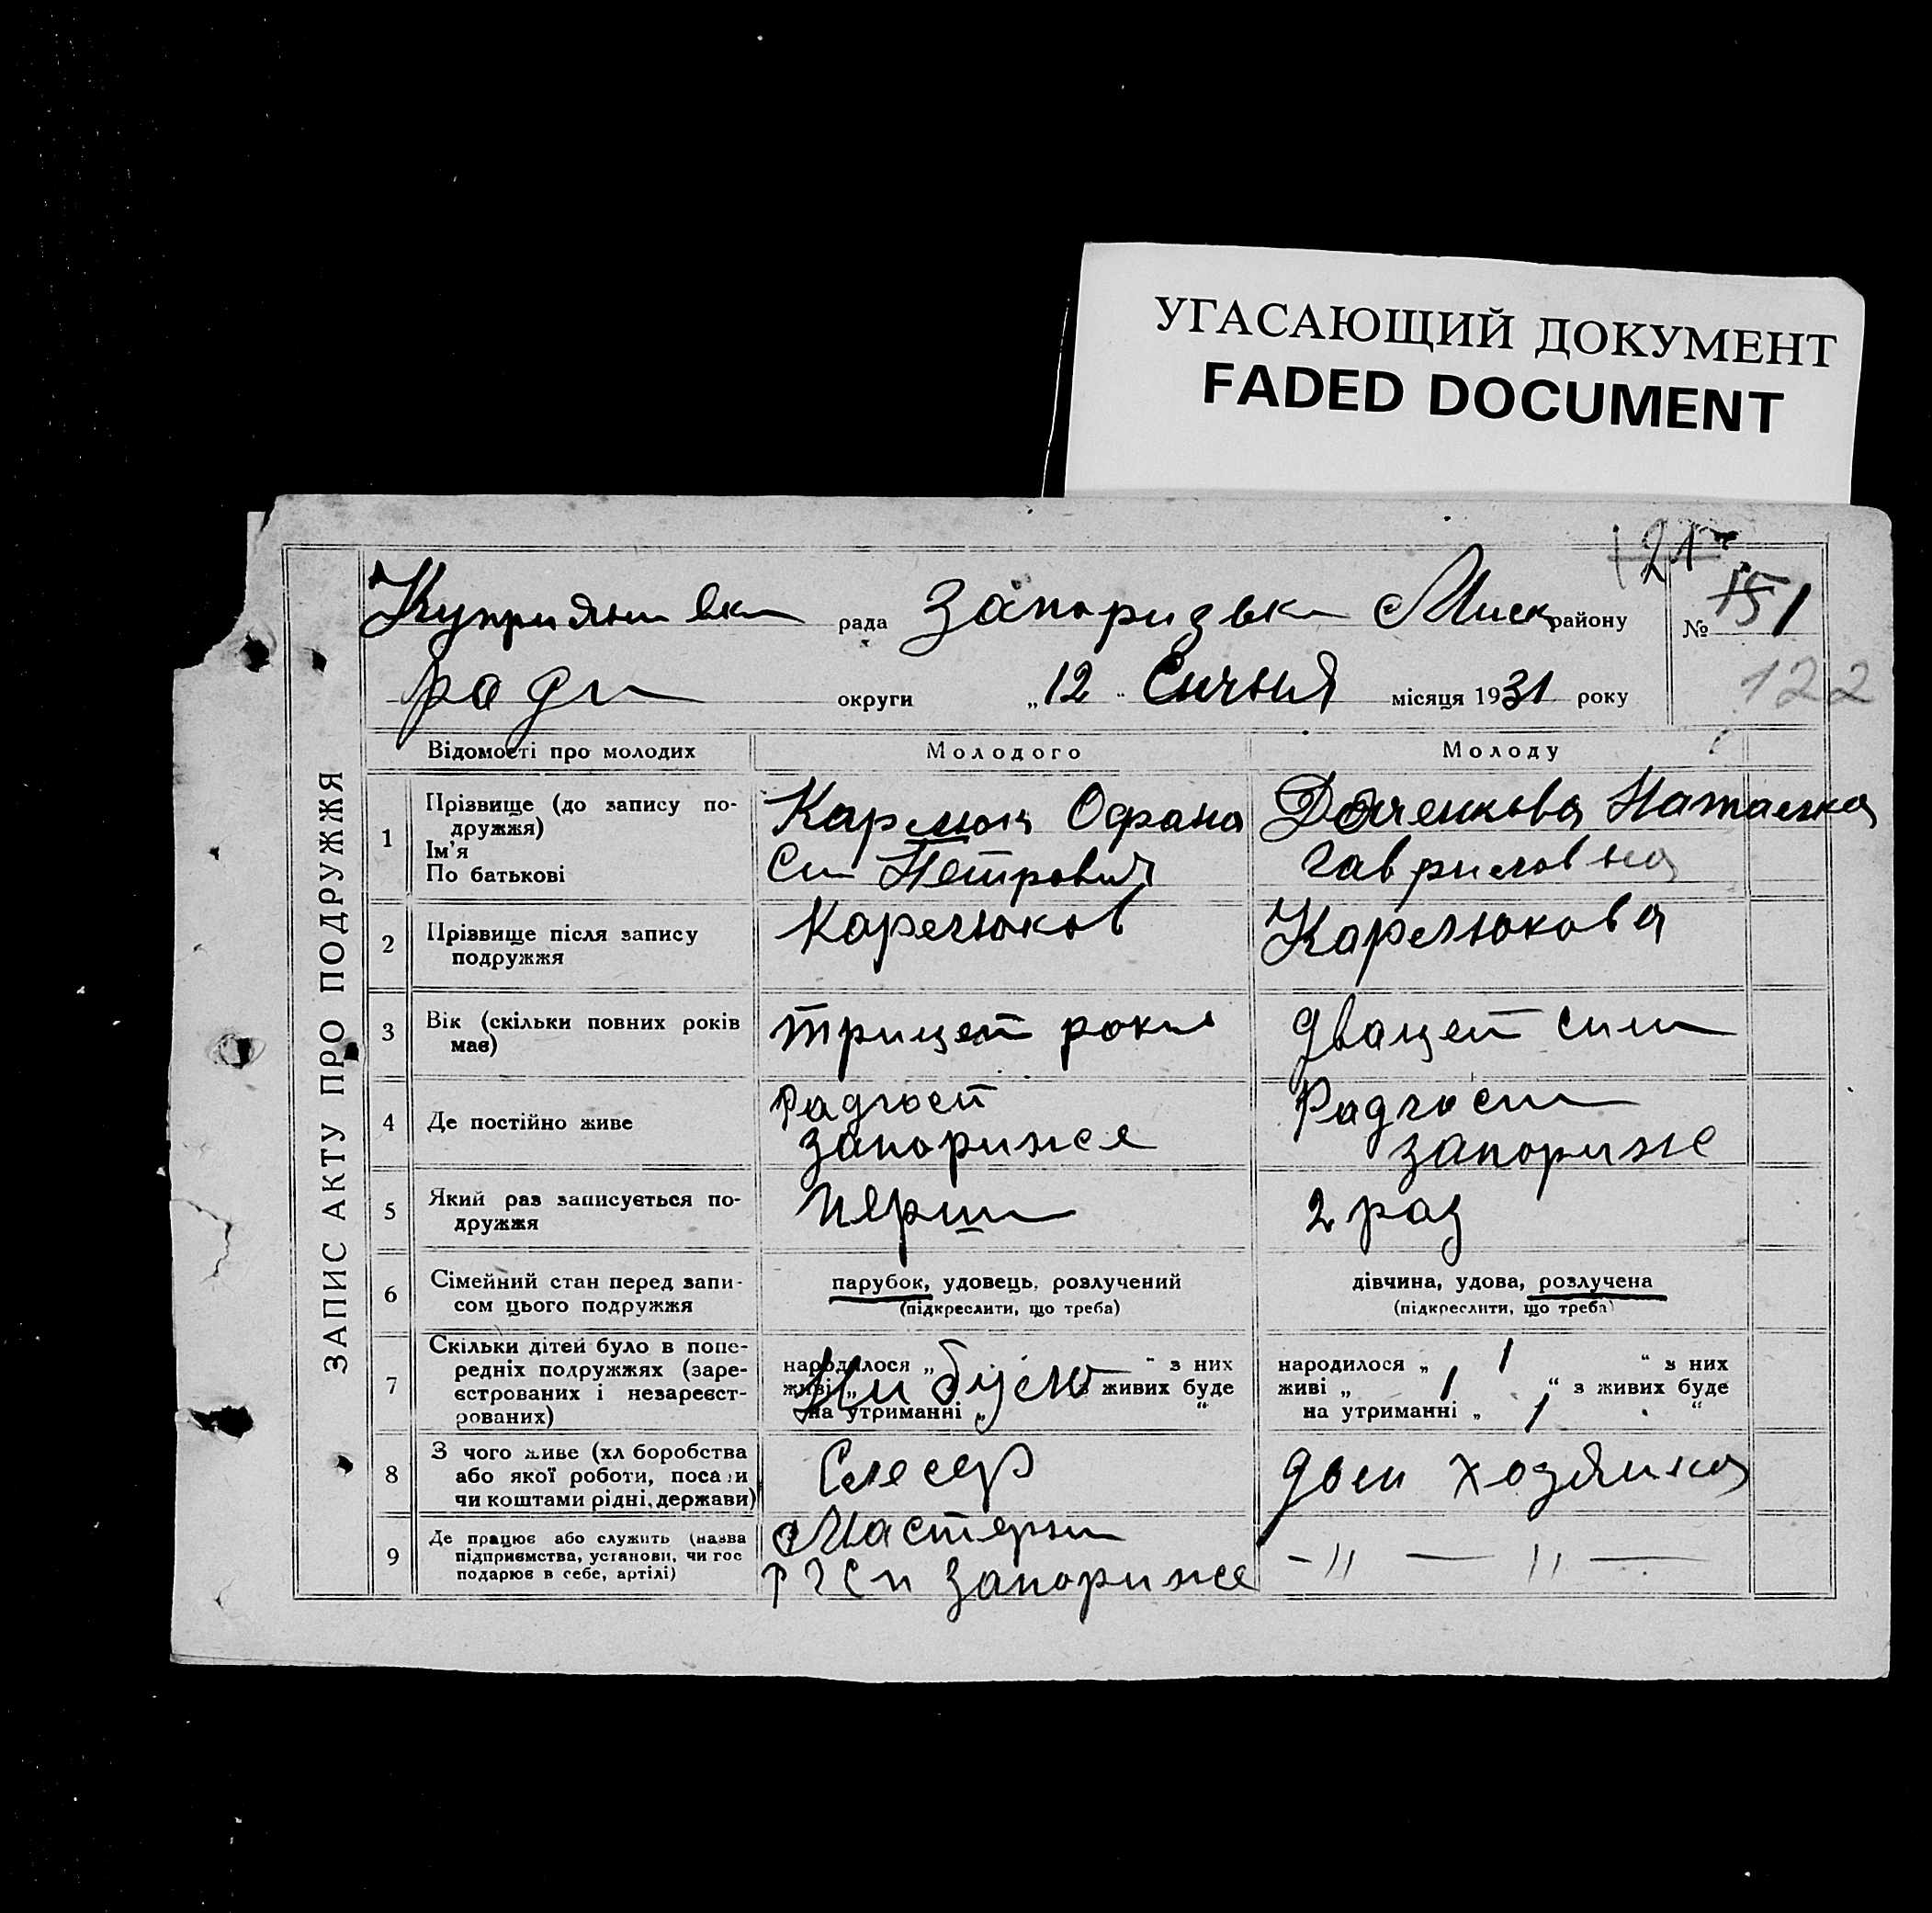 УГАСАЮЩИЙ ДОКУМЕНТ
FADED DOCUMENT
121
Куприянивка рада Запоризька Миск району № 1
ради округи „12“ Сичния місяця 1931 року
122
ЗАПИС АКТУ ПРО ПОДРУЖЖЯ
Відомості про молодих Молодого Молоду
1 Прізвище (до запису подружжя) Офана Наталка
Ім'я
По батькові Петрович Гавриловна
2 Прізвище після запису подружжя Карелюков Карелюкова
3 Вік (скільки повних років має) трицет роки двацет сим
4 Де постійно живе Радгосп Запориже Радгосп Запориже
5 Який раз записується подружжя перши 2 раз
6 Сімейний стан перед записом цього подружжя парубок, удовець, розлучений дівчина, удова, розлучена
(підкреслити, що треба) (підкреслити, що треба)
7 Скільки дітей було в попередніх подружжях (зареєстрованих і незареєстрованих) народилося „ “ з них народилося „ 1 “ з них
живі „ “ з живих буде живі „ 1 “ з живих буде
на утриманні „ “ на утриманні „ 1 “
Ни було
8 З чого живе (хліборобства або якої роботи, посади чи коштами рідні, держави) Слесер дом хозяика
9 Де працює або служить (назва підприємства, установи, чи господарює в себе, артілі) Мастерни Запориже - 〃 — 〃 —